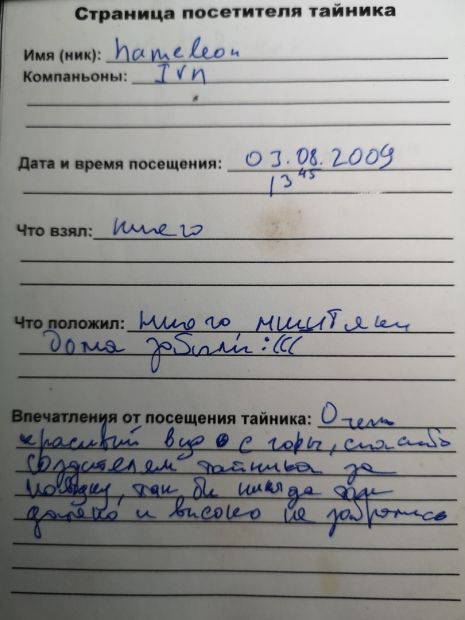 Страница посетителя тайника
Имя (ник): hameleon
Компаньоны: Irn
Дата и время посещения: 03.08.2009
13 45
Что взял: ничего
Что положил: ничего, ништяки
дома забыли :(((
Впечатления от посещения тайника: Очень
красивый вид с горы, спасибо
создателям тайника за
наводку, так бы никогда так
далеко и высоко не забрались